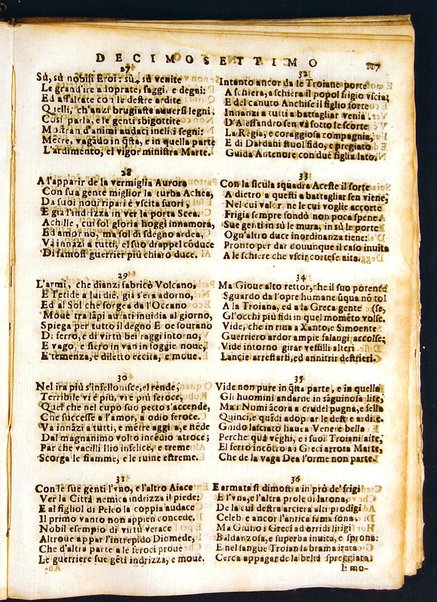 DECIMOSETTIMO
27
Sù, sù nobili Eroi: sù, sù venite
Le grand'ire adoprate, saggi, e degni:
Ed assaltate con le destre ardite
Quelli, ch'anzi brugiaro i nauesti legni.
Così parla, e le genti sbigottite
Mostran d'animi audaci in elti segni:
Mẽtre, vagãdo in q̃sta, e in quella parte
L'ardimento, el vigor ministra Marte.
28
A l'apparir de la vermiglia Aurora
Con sua gente miglior la turba Achea,
Da suoi noui ripari è vscita fuori,
E già l'indrizza in ver la porta Scea.
Achille, cui sol gloria hoggi innamora,
Ed amor no, ma sol di sdegno ardea,
Và innãzi a tutti, e'l suo drappel cõduce
Di famosi guerrier più chiaro duce.
29
L'armi, che dianzi fabricò Volcano,
E Tetide a lui diè, già s'era adorno,
Ed al Sol che sorgea da l'Oceano
Moue trà lãpi audati inuidia al giorno,
Spiega per tutto il degno Eroe sourano
Di ferro, e di virtù bei raggi intorno,
E vago, e fiero in van in loggie noue,
E temenza, e diletto eccita, e moue.
30
Nel ira più s'infellonisce, el rende,
Terribile vi è più, vie più feroce,
Quel che nel cupo suo petto s'accende,
Che successe a l'amor, a odio feroce.
Và innãzi a tutti, e mẽtre aggira, e rẽde
Dal magnanimo volto incẽdio atroce;
Par che vacilli Ilio infelice, e treme
Scorga le fiamme, e le ruine estreme.
31
Con le sue genti l'vno, e l'altro Aiace
Ver la Città nemica indrizza il piede:
E al figliol di Peleo la coppia audace
Il primo vanto non appien concede.
Nobil esempio di virtù verace
Altroue appar l'intrepido Diomede,
Che d'altra parte a le feroci proue
Le guerriere sue gẽti indrizza, e moue.
32
Intanto ancor da le Troiane porte
A schiera, a schiera il popol frigio vscia;
E del canuto Anchise il figlio forte
Innanzi a tutti a battagliar venia.
D'Alessandro sen và sotto le scorte
La Regia, e coraggiosa compagnia;
E di Dardani stuol fido, e pregiato
Guida Antenore con due figlia lato.
33
Con la sicula squadra Aceste il forte
A dietro a questi a battagliar sen viene,
Nel cui valor, ne le cui voglie accorte
Frigia sempre fondò non poca spene.
Sue genti in sù le mura, in sù le porte
Ogn'altro duce inordinanza tiene:
Pronto per dar dounque il caso inuita
A le schiere che vscir cortese aita.
34
Ma Gioue alto rettor, che il suo potente
Sguardo da l'opre humane vnquã nõ tol
A la Troiana, ed a la Greca gente (se,
Gl'occhi più fidi in quel momẽto volse.
Vide, che in riua a Xanto, e Simoente
Guerriero ardor ampie falangi accolse;
Vide intorno girar vessilli alteri
Lancie arrestarsi, ed annitrir destrieri.
35
Vide non pure in q̃sta parte, e in quella
Gli huomini andarne in sãguinosa lite,
Ma i Numi àcora a crudel pugna, e fella
Quinci, e quindi adoprar le destre ardite.
Guido lasciato haueа Venere bella
Perche quà vẽghi, e i suoi Troiani aite,
El ferro incõtro ai Greci arrota Marte,
Che de la vaga Dea l'orme non parte.
36
E armata si dimostra in prò de' frigi
E l'vna, e l'altra prole di Latona,
De la cui destra arciera alti prodigi
Celeb e ancor l'antica fama sona.
Ma Giuno i Greci ad orridi litigi
Baldanzosa, e superba inuita, e sprona:
E nel sangue Troian la brama irata
Cerca appagar de la beltà spreggiata.
E mo-